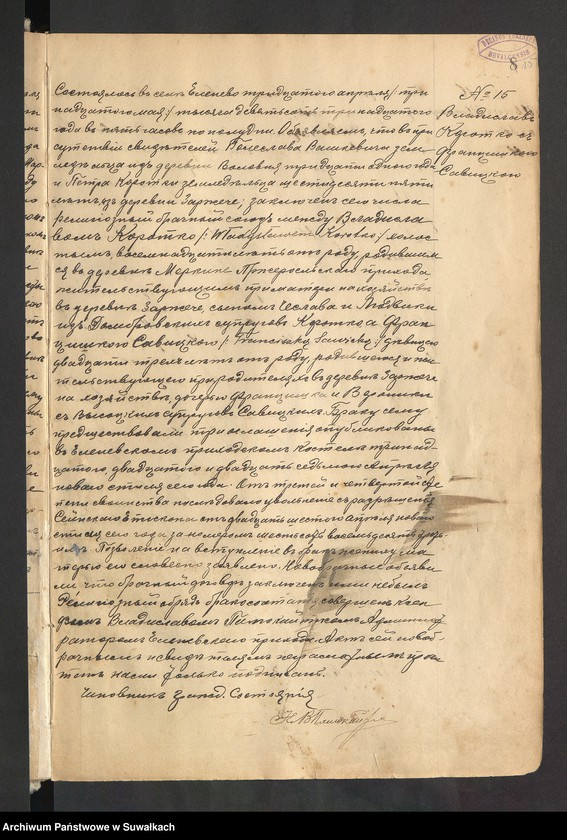 8
№ 15
Владиславъ
Коротко съ
Францишкою
Савицкою
Состоялось въ селѣ Еленево тридцатаго апрѣля /: три
надцатого мая :/ тысяча девятьсотъ тринадцатого
года въ пять часовъ пополудни. Объявляемъ, что въ при
сутствіи свидѣтелей Болеслава Вашкевича земле
дѣльца изъ деревни тридцати одного года
и Петра Коротки земледѣльца шестидесяти пяти
лѣтъ изъ деревни Заржече; заключенъ сего числа
религіозный брачный союзъ между Владисла
вомъ Коротко /: Władysławem Korotko :/ холос
тымъ, восемнадцати лѣтъ отъ роду, родившим
ся въ деревнѣ Меркине прихода
жительствующимъ при матери на хозяйствѣ
въ деревнѣ Заржече, сыномъ Чеслава и Людвики
изъ Домбровскихъ супруговъ Коротко а Фран
цишкою Савицкою /: Franciszką Sawicką :/ дѣвицею
двадцати трехъ лѣтъ отъ роду, родившеюся и жи
тельствующею при родителяхъ въ деревнѣ Заржече
на хозяйствѣ, дочерью Францишка и Вероники
съ Высоцкихъ супруговъ Савицкихъ. Браку сему
предшествовали три оглашенія опубликованы
въ Еленевскомъ приходскомъ Костелѣ тринад
цатого, двадцатого и двадцать седьмого апрѣля
новаго стиля сего года. Отъ третей и четвертой сте
пени свойства послѣдовало увольненіе съ разрѣшенія
Сейнскаго Епископа отъ двадцать шестого апрѣля новаго
стиля сего года, за номеромъ шестьсотъ восемьдесятъ
Позволеніе на вступленіе въ бракъ жениху ма
терью его словесно заявлено. Новобрачные объяви
ли что брачный договоръ заключенъ ими не былъ
Религіозный обрядъ бракосочетанія совершенъ Ксен
дзомъ Владиславомъ Админист
раторомъ Еленевскаго прихода. Актъ сей новоб
рачнымъ и свидѣтелямъ неграмотнымъ прочи
танъ нами только подписанъ.
Чиновникъ Гражд. Состоянія
Archiwum Państwowe w Suwałkach